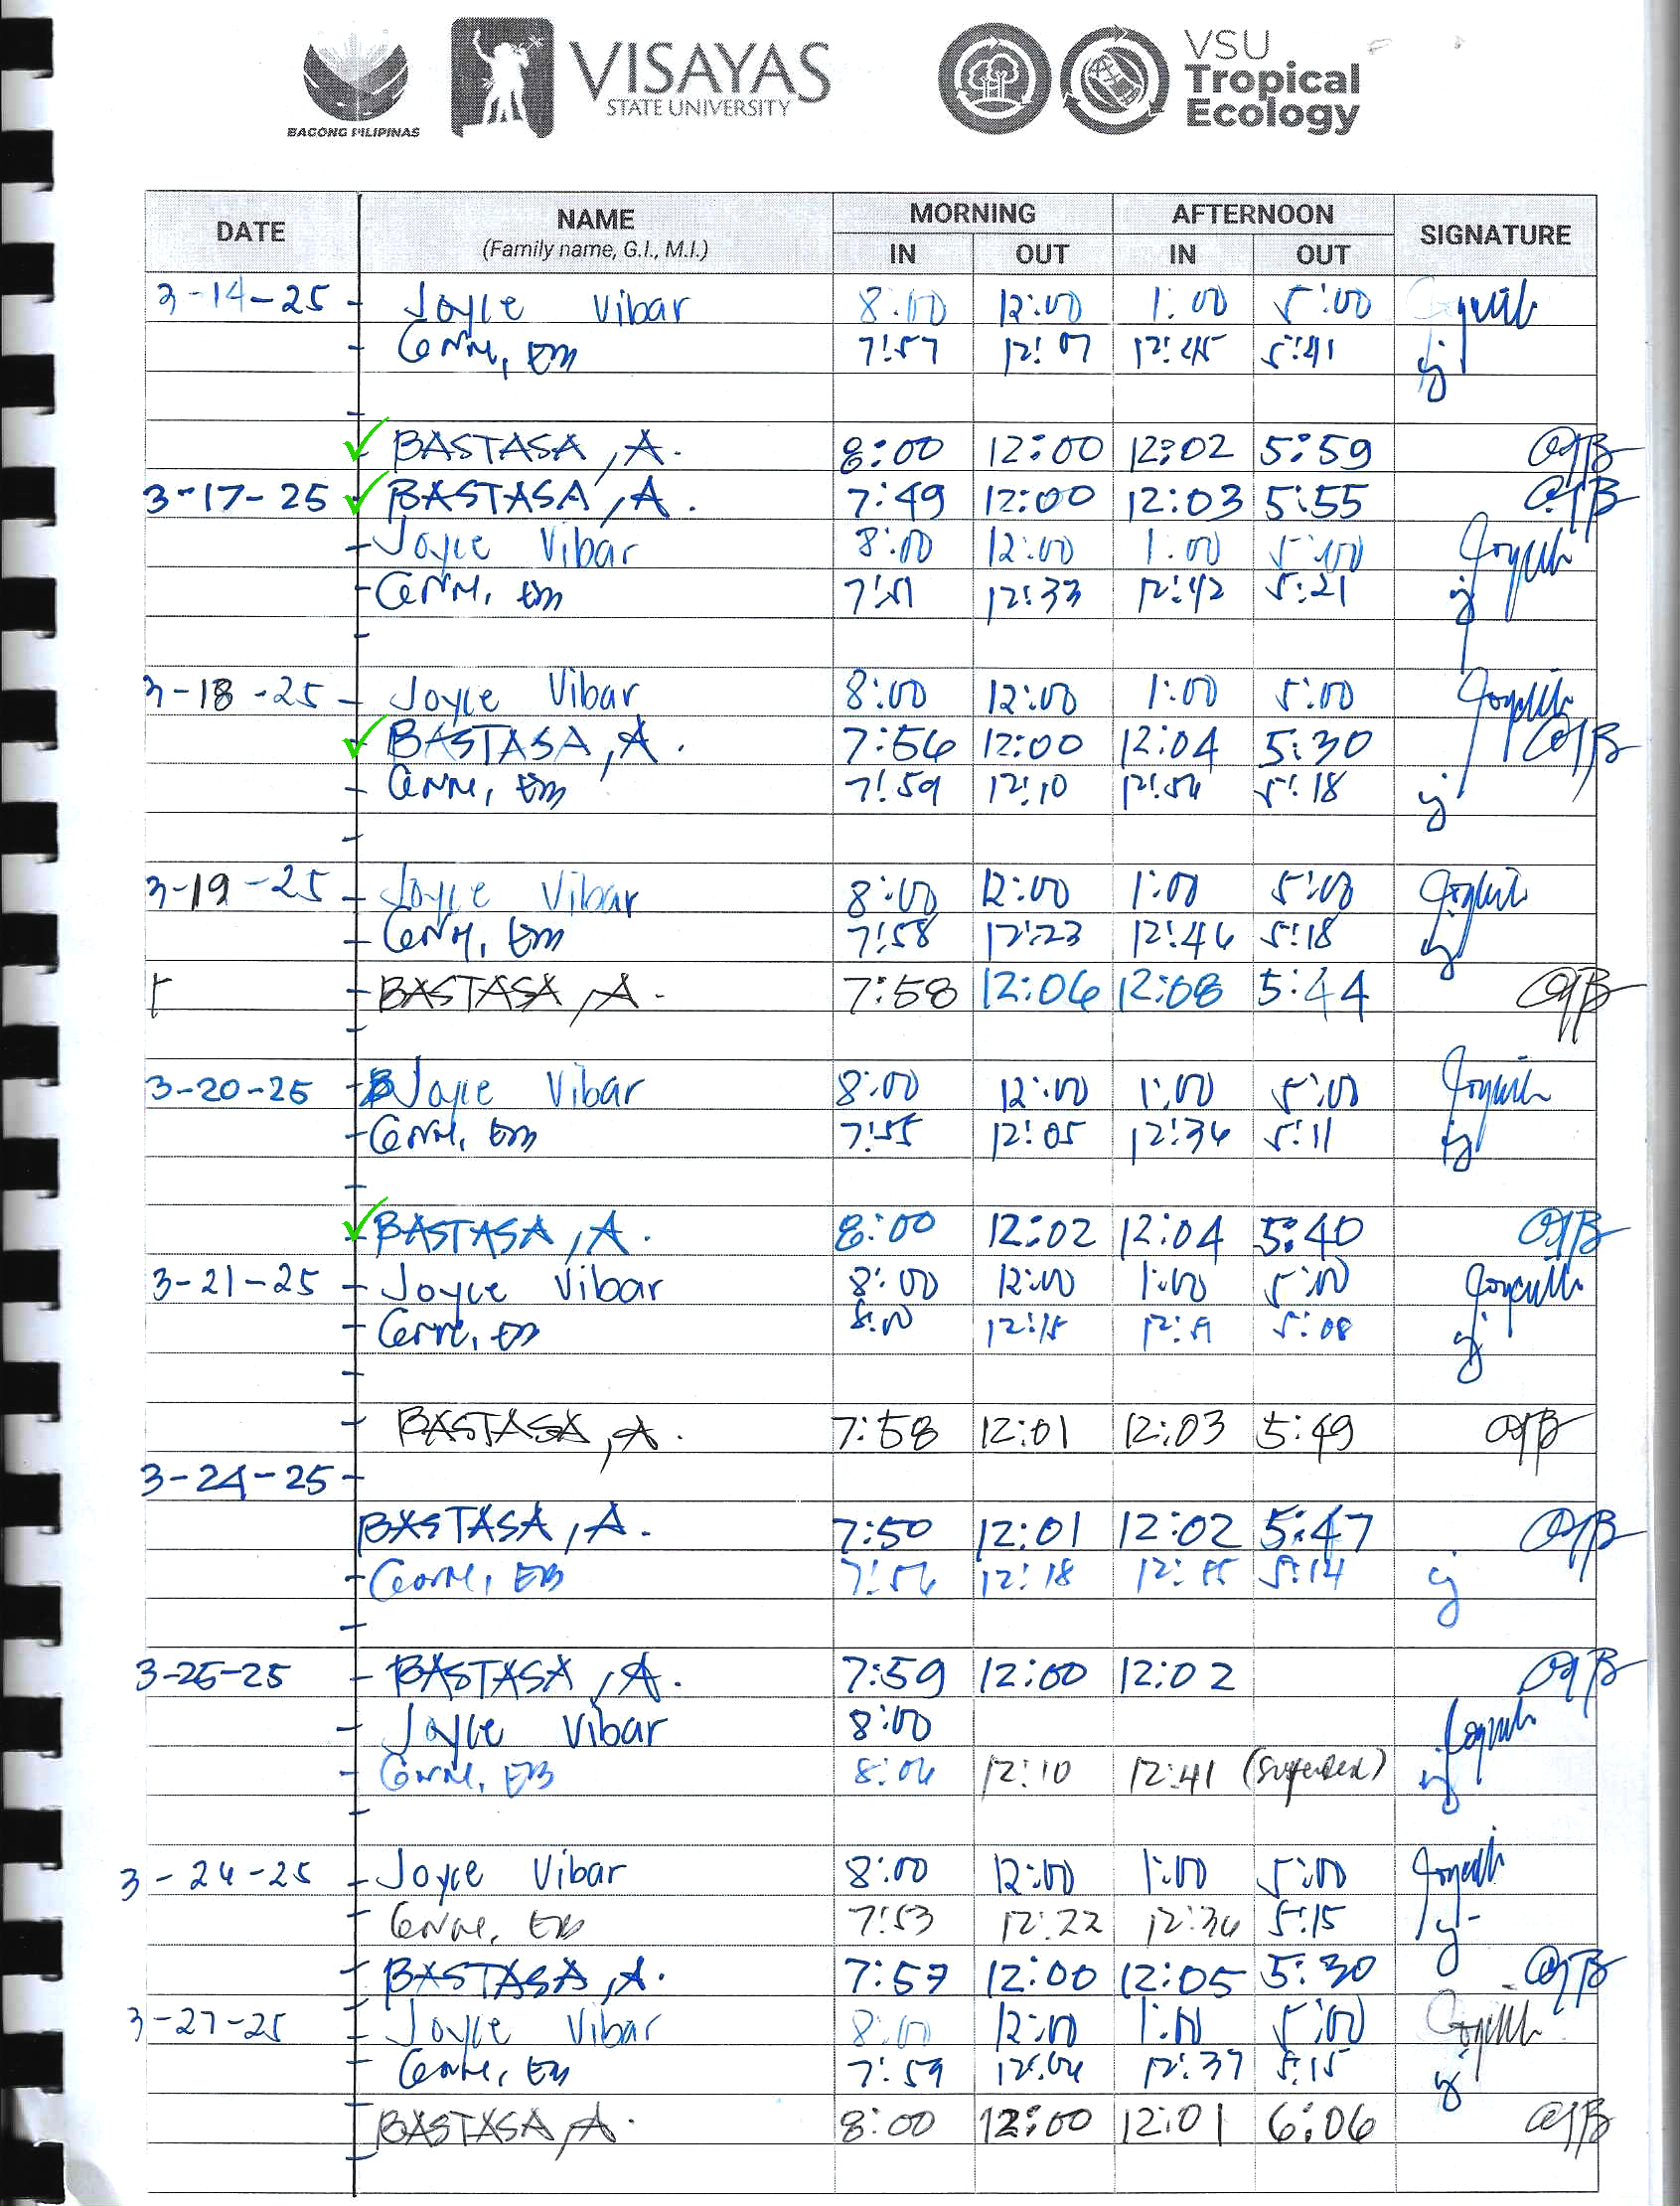 BAGONG PILIPINAS
VISAYAS
STATE UNIVERSITY
VSU
Tropical
Ecology
DATE NAME MORNING AFTERNOON SIGNATURE
(Family name, G.I., M.I.) IN OUT IN OUT
3-14-25 - Joyce Vibar 8:00 12:00 1:00 5:00
- EM 7:57 12:07 12:45 5:41
BASTASA, A. 8:00 12:00 12:02 5:59
3-17-25 BASTASA, A. 7:49 12:00 12:03 5:55
- Joyce Vibar 8:00 12:00 1:00 5:00
- EM 7:51 12:33 12:42 5:21
3-18-25 - Joyce Vibar 8:00 12:00 1:00 5:00
BASTASA, A. 7:56 12:00 12:04 5:30
- EM 7:59 12:10 12:56 5:18
3-19-25 - Joyce Vibar 8:00 12:00 1:00 5:00
- EM 7:58 12:23 12:46 5:18
- BASTASA, A. 7:58 12:06 12:08 5:44
3-20-25 - Joyce Vibar 8:00 12:00 1:00 5:00
- EM 7:55 12:05 12:36 5:11
BASTASA, A. 8:00 12:02 12:04 5:40
3-21-25 - Joyce Vibar 8:00 12:00 1:00 5:00
- EM 8:00 12:15 12:51 5:08
- BASTASA, A. 7:58 12:01 12:03 5:49
3-24-25 -
BASTASA, A. 7:50 12:01 12:02 5:47
- EB 7:56 12:18 12:55 5:14
3-25-25 - BASTASA, A. 7:59 12:00 12:02
- Joyce Vibar 8:00
- EB 8:06 12:10 12:41 (suspended)
3-26-25 - Joyce Vibar 8:00 12:00 1:00 5:00
- EB 7:53 12:22 12:36 5:15
- BASTASA, A. 7:57 12:00 12:05 5:30
3-27-25 - Joyce Vibar 8:00 12:00 1:00 5:00
- EM 7:59 12:06 12:37 5:15
BASTASA, A. 8:00 12:00 12:01 6:06